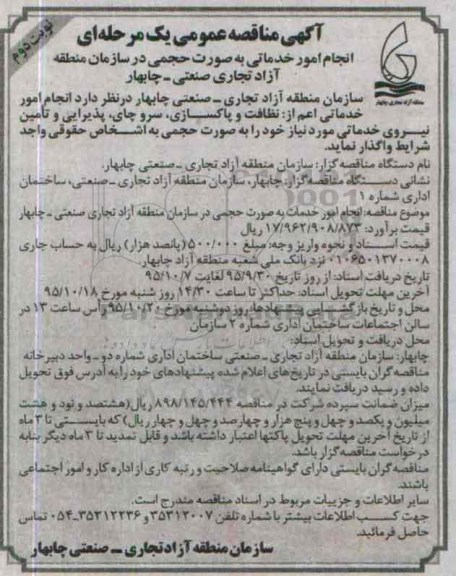 نوبت دوم
آگهی مناقصه عمومی یک مرحله‌ای
انجام امور خدماتی به صورت حجمی در سازمان منطقه
آزاد تجاری صنعتی ـ چابهار
سازمان منطقه آزاد تجاری ـ صنعتی چابهار
سازمان منطقه آزاد تجاری ـ صنعتی چابهار درنظر دارد انجام امور
خدماتی اعم از: نظافت و پاکسازی، سرو چای، پذیرایی و تأمین
نیروی خدماتی مورد نیاز خود را به صورت حجمی به اشخاص حقوقی واجد
شرایط واگذار نماید.
نام دستگاه مناقصه گزار: سازمان منطقه آزاد تجاری ـ صنعتی چابهار.
نشانی دستگاه مناقصه گزار: چابهار، سازمان منطقه آزاد تجاری ـ صنعتی، ساختمان
اداری شماره ۱
موضوع مناقصه: انجام امور خدمات به صورت حجمی در سازمان منطقه آزاد تجاری صنعتی ـ چابهار
قیمت برآورد: ۱۷/۹۶۲/۹۰۸/۸۷۳ ریال
قیمت اسناد و نحوه واریز وجه: مبلغ ۵۰۰/۰۰۰ (پانصد هزار) ریال به حساب جاری
۰۱۰۶۵۰۱۳۷۰۰۰۸ نزد بانک ملی شعبه منطقه آزاد چابهار
تاریخ دریافت اسناد: از روز تاریخ ۹۵/۹/۳۰ لغایت ۹۵/۱۰/۷
آخرین مهلت تحویل اسناد: حداکثر تا ساعت ۱۴/۳۰ روز شنبه مورخ ۹۵/۱۰/۱۸
محل و تاریخ بازگشایی پیشنهادها: روز دوشنبه مورخ ۹۵/۱۰/۲۰ رأس ساعت ۱۳ در
سالن اجتماعات ساختمان اداری شماره ۲ سازمان
محل دریافت و تحویل اسناد:
چابهار: سازمان منطقه آزاد تجاری ـ صنعتی ساختمان اداری شماره دو ـ واحد دبیرخانه
مناقصه گران بایستی در تاریخ‌های اعلام شده پیشنهادهای خود را به آدرس فوق تحویل
داده و رسید دریافت نمایند.
میزان ضمانت سپرده شرکت در مناقصه ۸۹۸/۱۴۵/۴۴۴ ریال (هشتصد و نود و هشت
میلیون و یکصد و چهل و پنج هزار و چهارصد و چهل و چهار ریال) که بایستی تا ۳ ماه
از تاریخ آخرین مهلت تحویل پاکتها اعتبار داشته باشد و قابل تمدید تا ۳ ماه دیگر بنابه
درخواست مناقصه گزار باشد.
مناقصه گران بایستی دارای گواهینامه صلاحیت و رتبه کاری از اداره کار و امور اجتماعی
باشند.
سایر اطلاعات و جزییات مربوط در اسناد مناقصه مندرج است.
جهت کسب اطلاعات بیشتر با شماره تلفن ۳۵۳۱۲۰۰۷ و ۳۵۳۱۲۲۳۶-۰۵۴ تماس
حاصل فرمائید.
سازمان منطقه آزاد تجاری ـ صنعتی چابهار